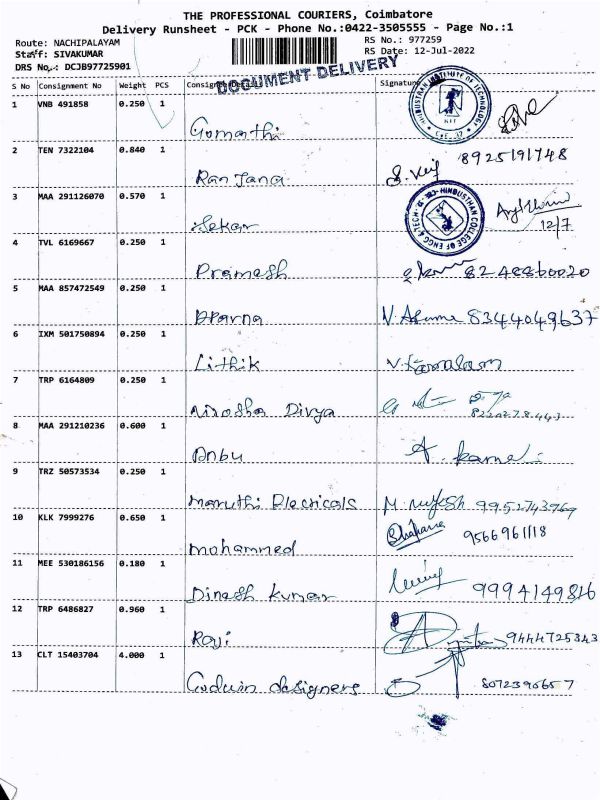 THE PROFESSIONAL COURIERS, Coimbatore
Delivery Runsheet - PCK - Phone No.:0422-3505555 - Page No.:1
Route: NACHIPALAYAM RS No.: 977259
Staff: SIVAKUMAR RS Date: 12-Jul-2022
DRS No.: DCJB97725901
DOCUMENT DELIVERY
S No Consignment No Weight PCS Consig Signature
1 VNB 491858 0.250 1
Gomathi
2 TEN 7322104 0.840 1 8925191748
Ranjana
3 MAA 291126070 0.570 1
HINDUSTHAN COLLEGE OF ENGG & TECH
Sekar 12/7
4 TVL 6169667 0.250 1
Pramesh 8248860020
5 MAA 857472549 0.250 1
Aparna 8344049637
6 IXM 501750894 0.250 1
Lithik V. Kamalam
7 TRP 6164809 0.250 1
Nirosha Divya
8 MAA 291210236 0.600 1
Anbu
9 TRZ 50573534 0.250 1
Maruthi Electricals
10 KLK 7999276 0.650 1 9566961118
mohammed
11 MEE 530186156 0.180 1
Dinesh kumar 9994149816
12 TRP 6486827 0.960 1
Ravi 9444725343
13 CLT 15403704 4.000 1
Goduin designers